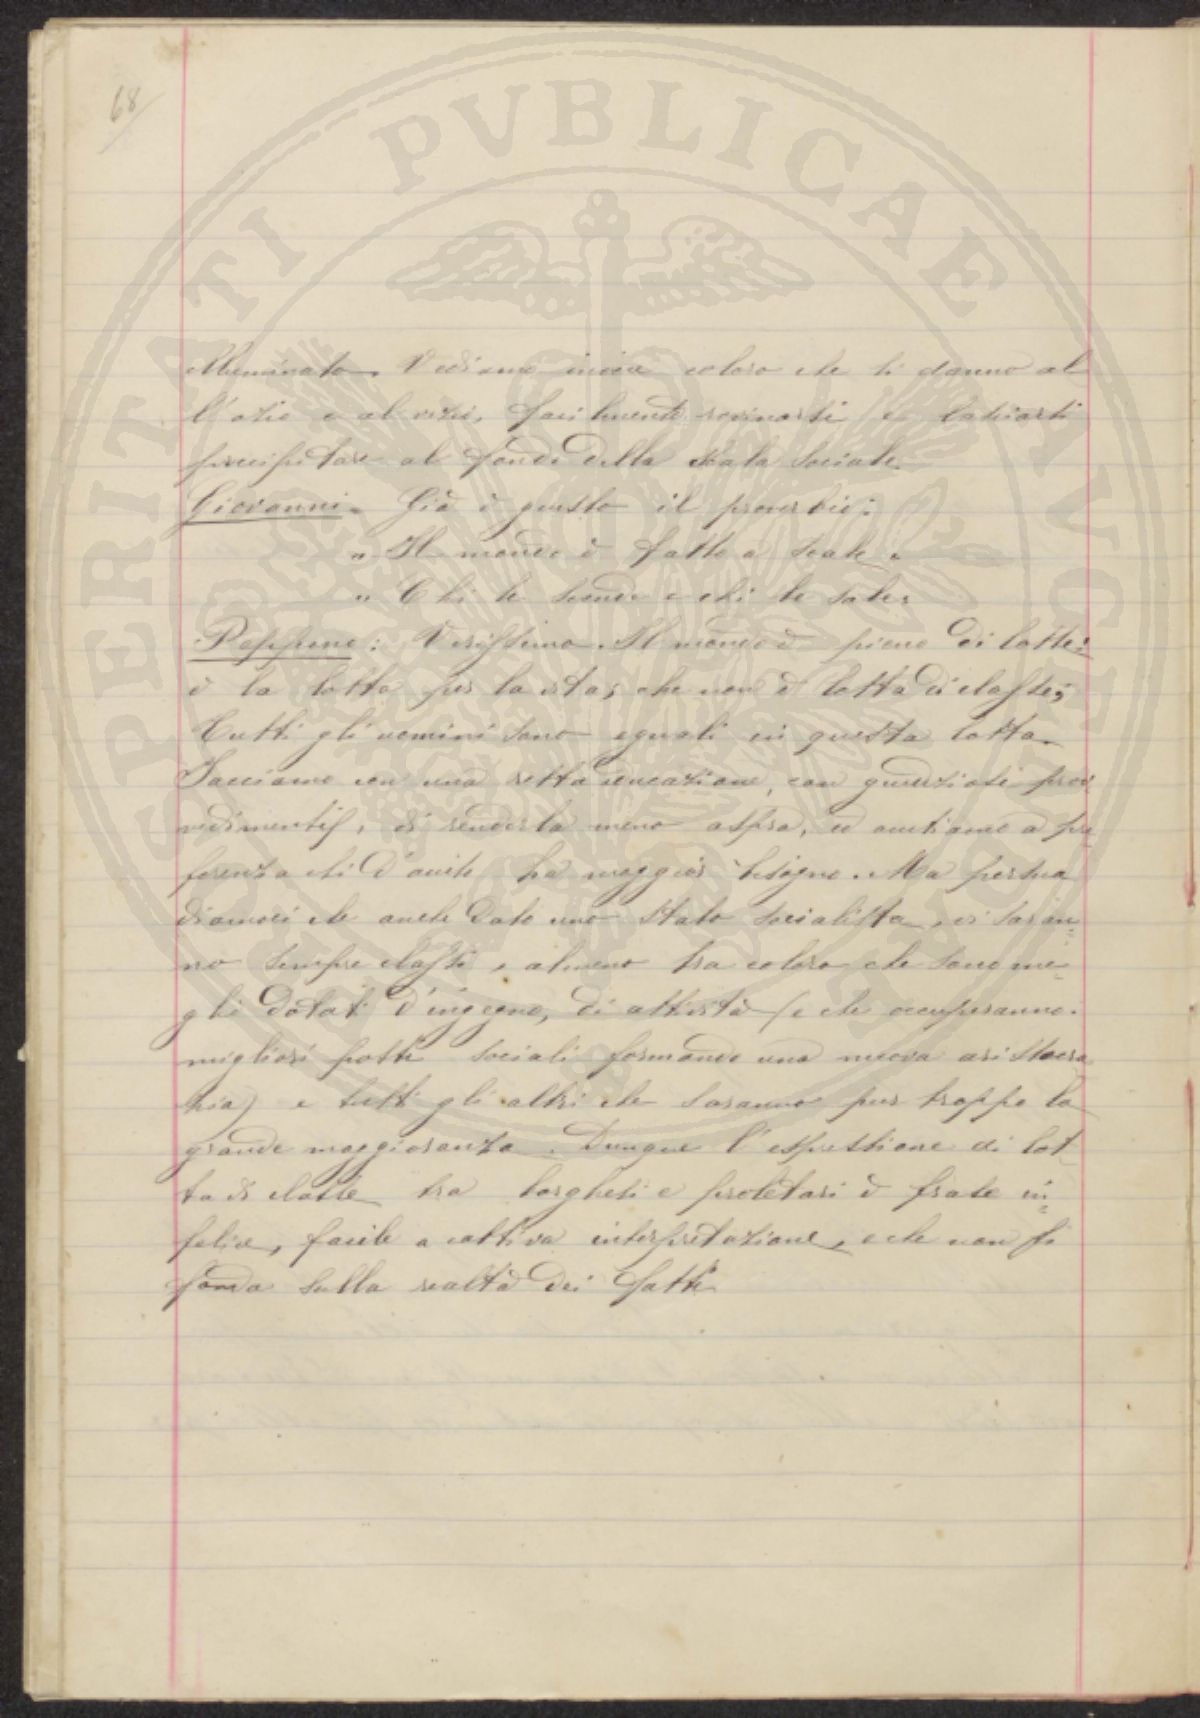 68
illuminato. Vediamo invece coloro che si danno al
l'ozio e al vizio, facilmente rovinarsi e lasciarsi
precipitare al fondo della scala sociale.
Giovanni. Già è giusto il proverbio:
" Il mondo è fatto a scale.
" Chi le scende e chi le sale.
Peppino: Verissimo. Il mondo è pieno di lotte:
è la lotta per la vita, che non è lotta di classe;
Tutti gli uomini sono eguali in questa lotta.
Facciamo con una retta educazione, con giudiziosi prov
vedimenti, di renderla meno aspra, ed aiutiamo a pre
ferenza chi d'aiuto ha maggior bisogno. Ma persua
diamoci che anche dato uno stato socialista, vi saran-
no sempre classi, almeno tra coloro che sono me-
glio dotati d'ingegno, di attività (e che occuperanno i
migliori posti sociali formando una nuova aristocra
zia) e tutti gli altri che saranno pur troppo la
grande maggioranza. Dunque l'espressione di lot
ta di classe tra borghesi e proletari è frase in-
felice, facile a cattiva interpretazione, e che non si
fonda sulla realtà dei fatti
SPERITATI PUBLICAE AUGENDAE